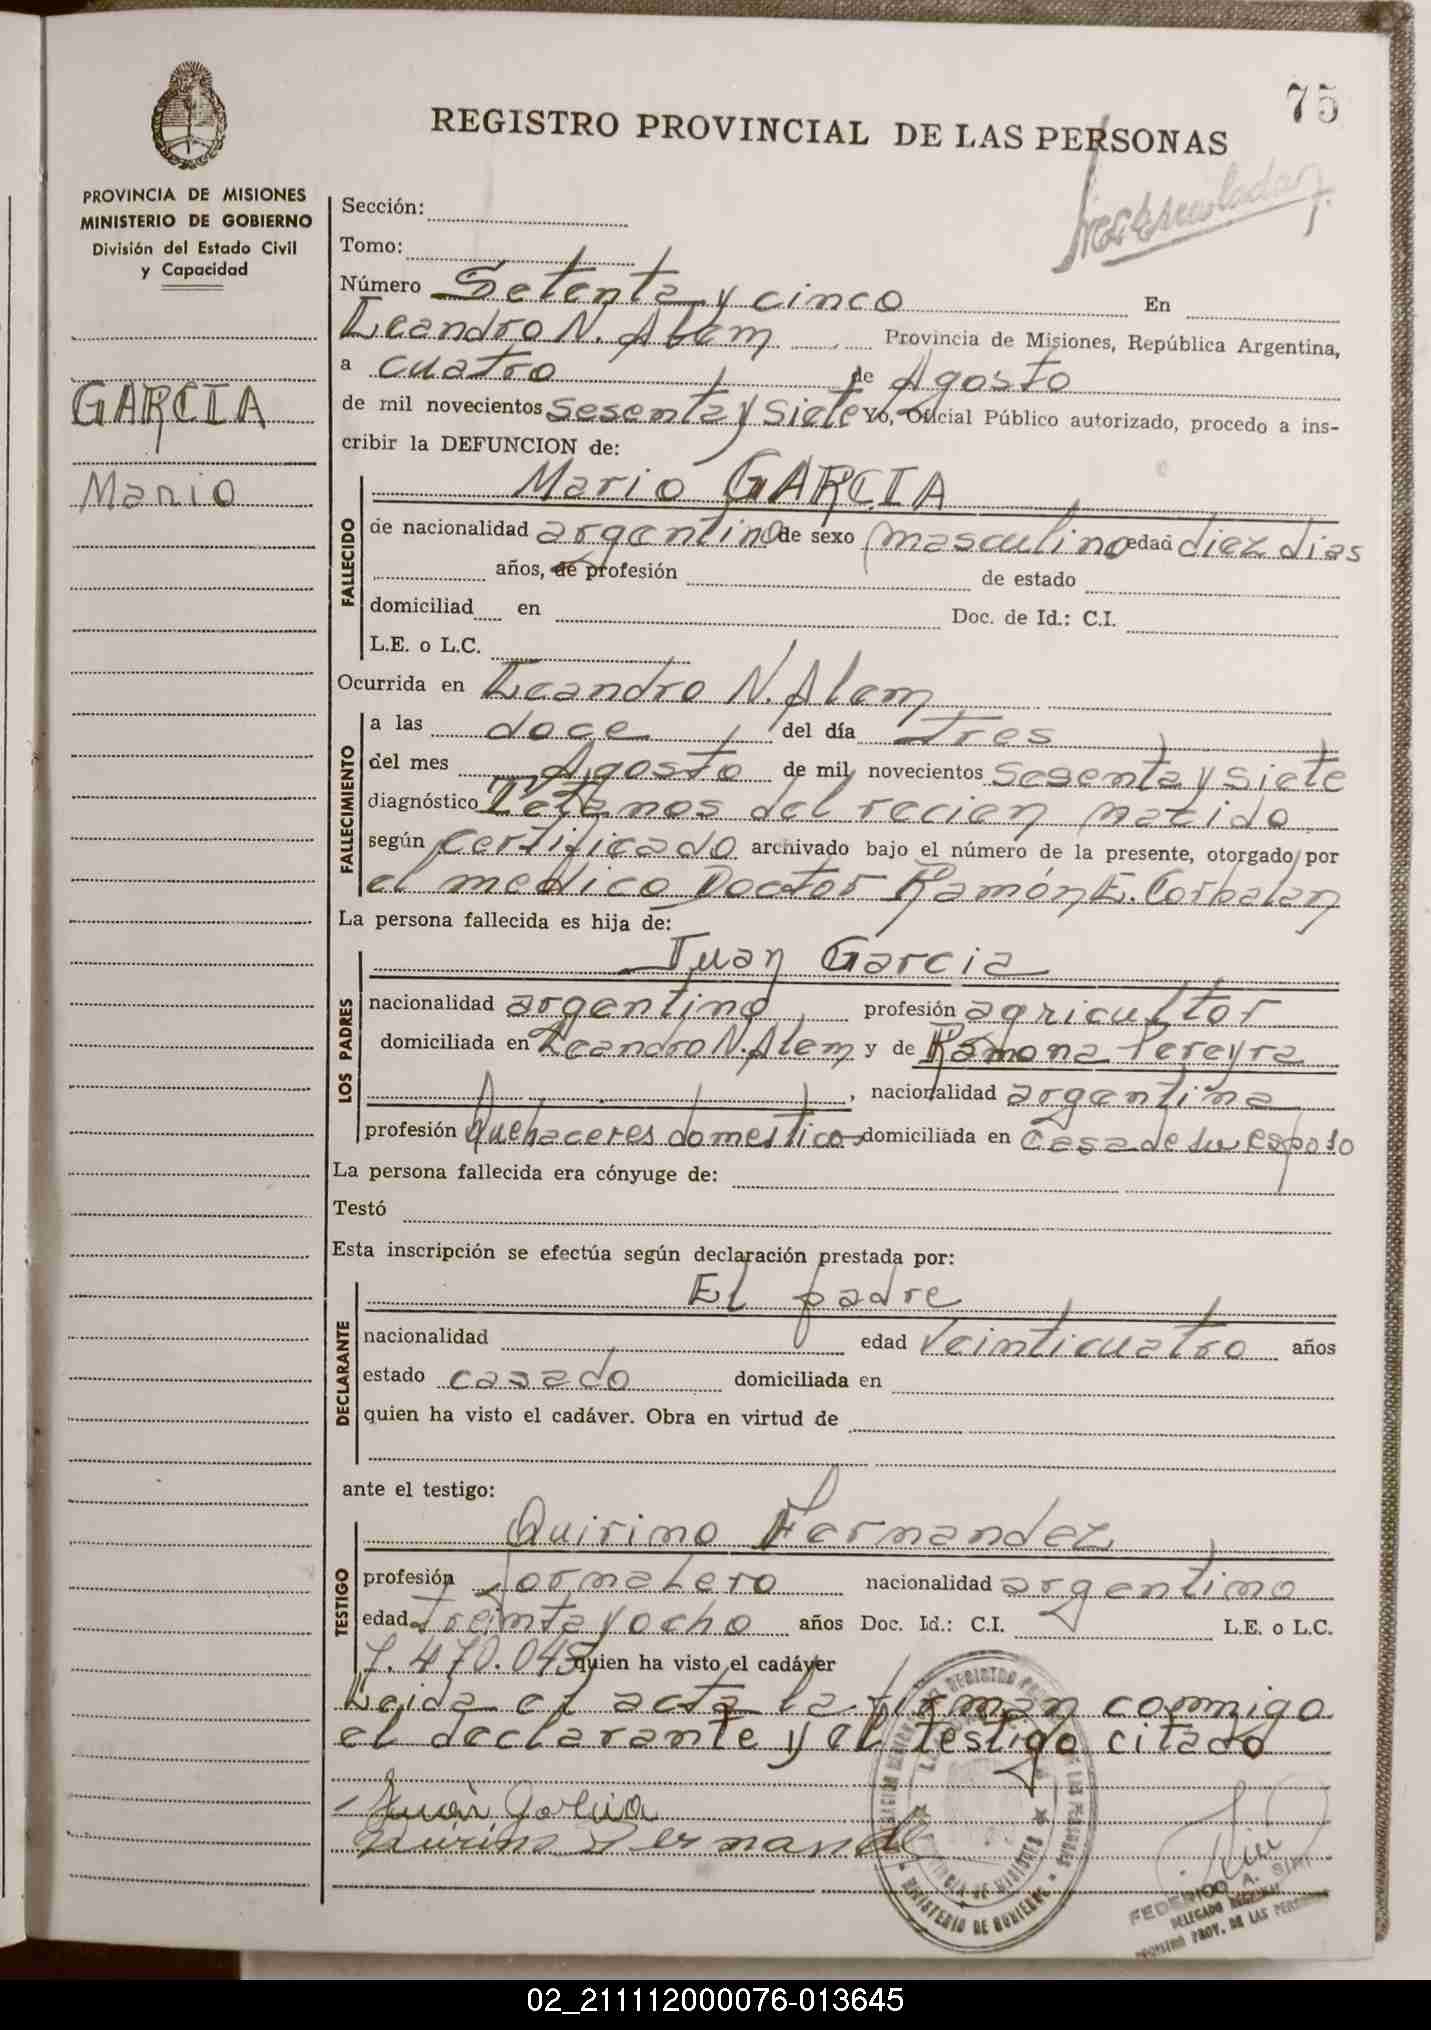 75
REGISTRO PROVINCIAL DE LAS PERSONAS
PROVINCIA DE MISIONES
MINISTERIO DE GOBIERNO
División del Estado Civil
y Capacidad
GARCIA
Mario
Sección:
Tomo:
Número Setenta y cinco En
Leandro N. Alem Provincia de Misiones, República Argentina,
a cuatro de Agosto
de mil novecientos sesenta y siete Yo, Oficial Público autorizado, procedo a ins-
cribir la DEFUNCION de:
Mario GARCIA
FALLECIDO
de nacionalidad argentino de sexo masculino edad diez dias
años, de profesión de estado
domiciliad en Doc. de Id.: C.I.
L.E. o L.C.
Ocurrida en Leandro N. Alem
FALLECIMIENTO
a las doce del día tres
del mes Agosto de mil novecientos sesenta y siete
diagnóstico Tetanos del recien nacido
según certificado archivado bajo el número de la presente, otorgado por
el medico Doctor Ramón E. Corbalan
La persona fallecida es hija de:
Juan Garcia
LOS PADRES
nacionalidad argentino profesión agricultor
domiciliada en Leandro N. Alem y de Ramona Pereyra
, nacionalidad argentina
profesión Quehaceres domesticos domiciliada en casa de su esposo
La persona fallecida era cónyuge de:
Testó
Esta inscripción se efectúa según declaración prestada por:
El padre
DECLARANTE
nacionalidad edad veinticuatro años
estado casado domiciliada en
quien ha visto el cadáver. Obra en virtud de
ante el testigo:
Quirino Fernandez
TESTIGO
profesión Jornalero nacionalidad argentino
edad treinta y ocho años Doc. Id.: C.I. L.E. o L.C.
7.470.045 quien ha visto el cadáver
Leida el acta la firman conmigo
el declarante y el testigo citado
Juan Garcia
Quirino Fernande
MINISTERIO DE GOBIERNO
PROVINCIA DE MISIONES
FEDERICO A.
DELEGADO
REGISTRO PROV. DE LAS PERSONAS
02_211112000076-013645